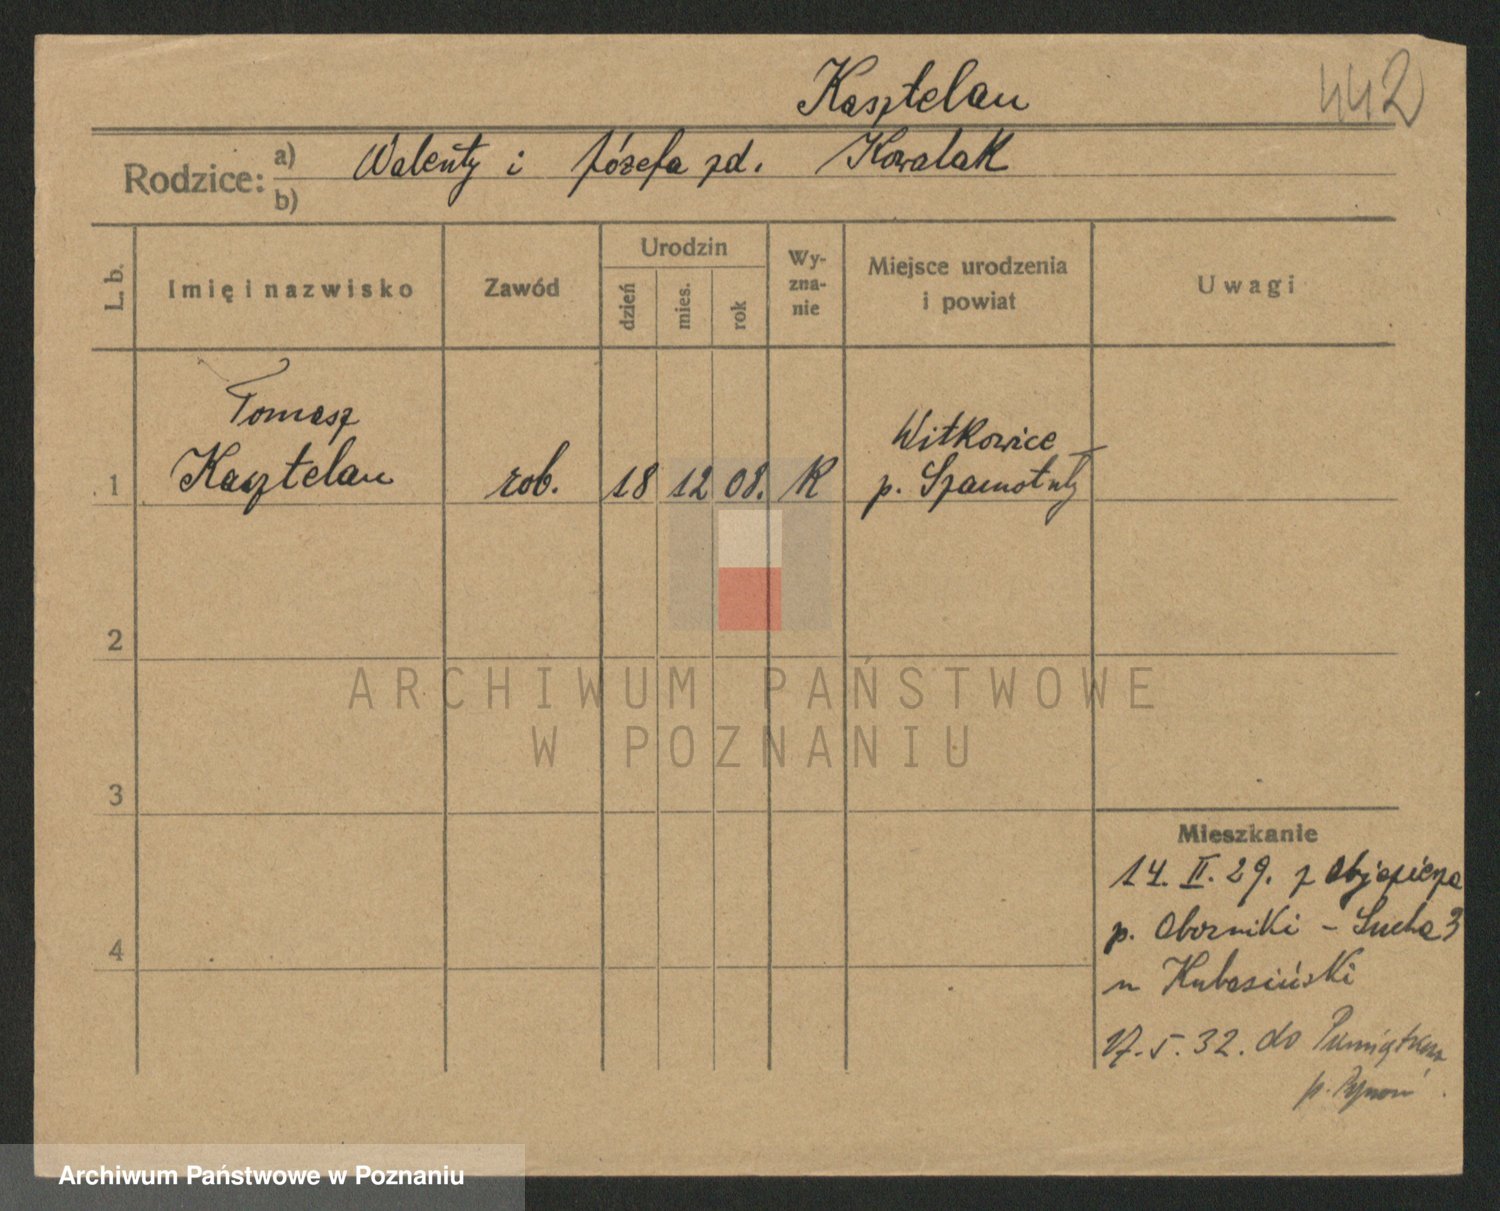 Kasztelan
442
Rodzice: a) Walenty i Józefa zd. Kowalak
b)
L. b.
Imię i nazwisko
Zawód
Urodzin
dzień
mies.
rok
Wy-
zna-
nie
Miejsce urodzenia
i powiat
Uwagi
Tomasz
1 Kasztelan rob. 18 12 08. K
Witkowice
p. Szamotuły
2
3
4
ARCHIWUM PAŃSTWOWE
W POZNANIU
Mieszkanie
14. II. 29. z Objezierza
p. Oborniki - Sucha 3
u Kubasiński
17. 5. 32. do Pamiątkowa
p.
Archiwum Państwowe w Poznaniu